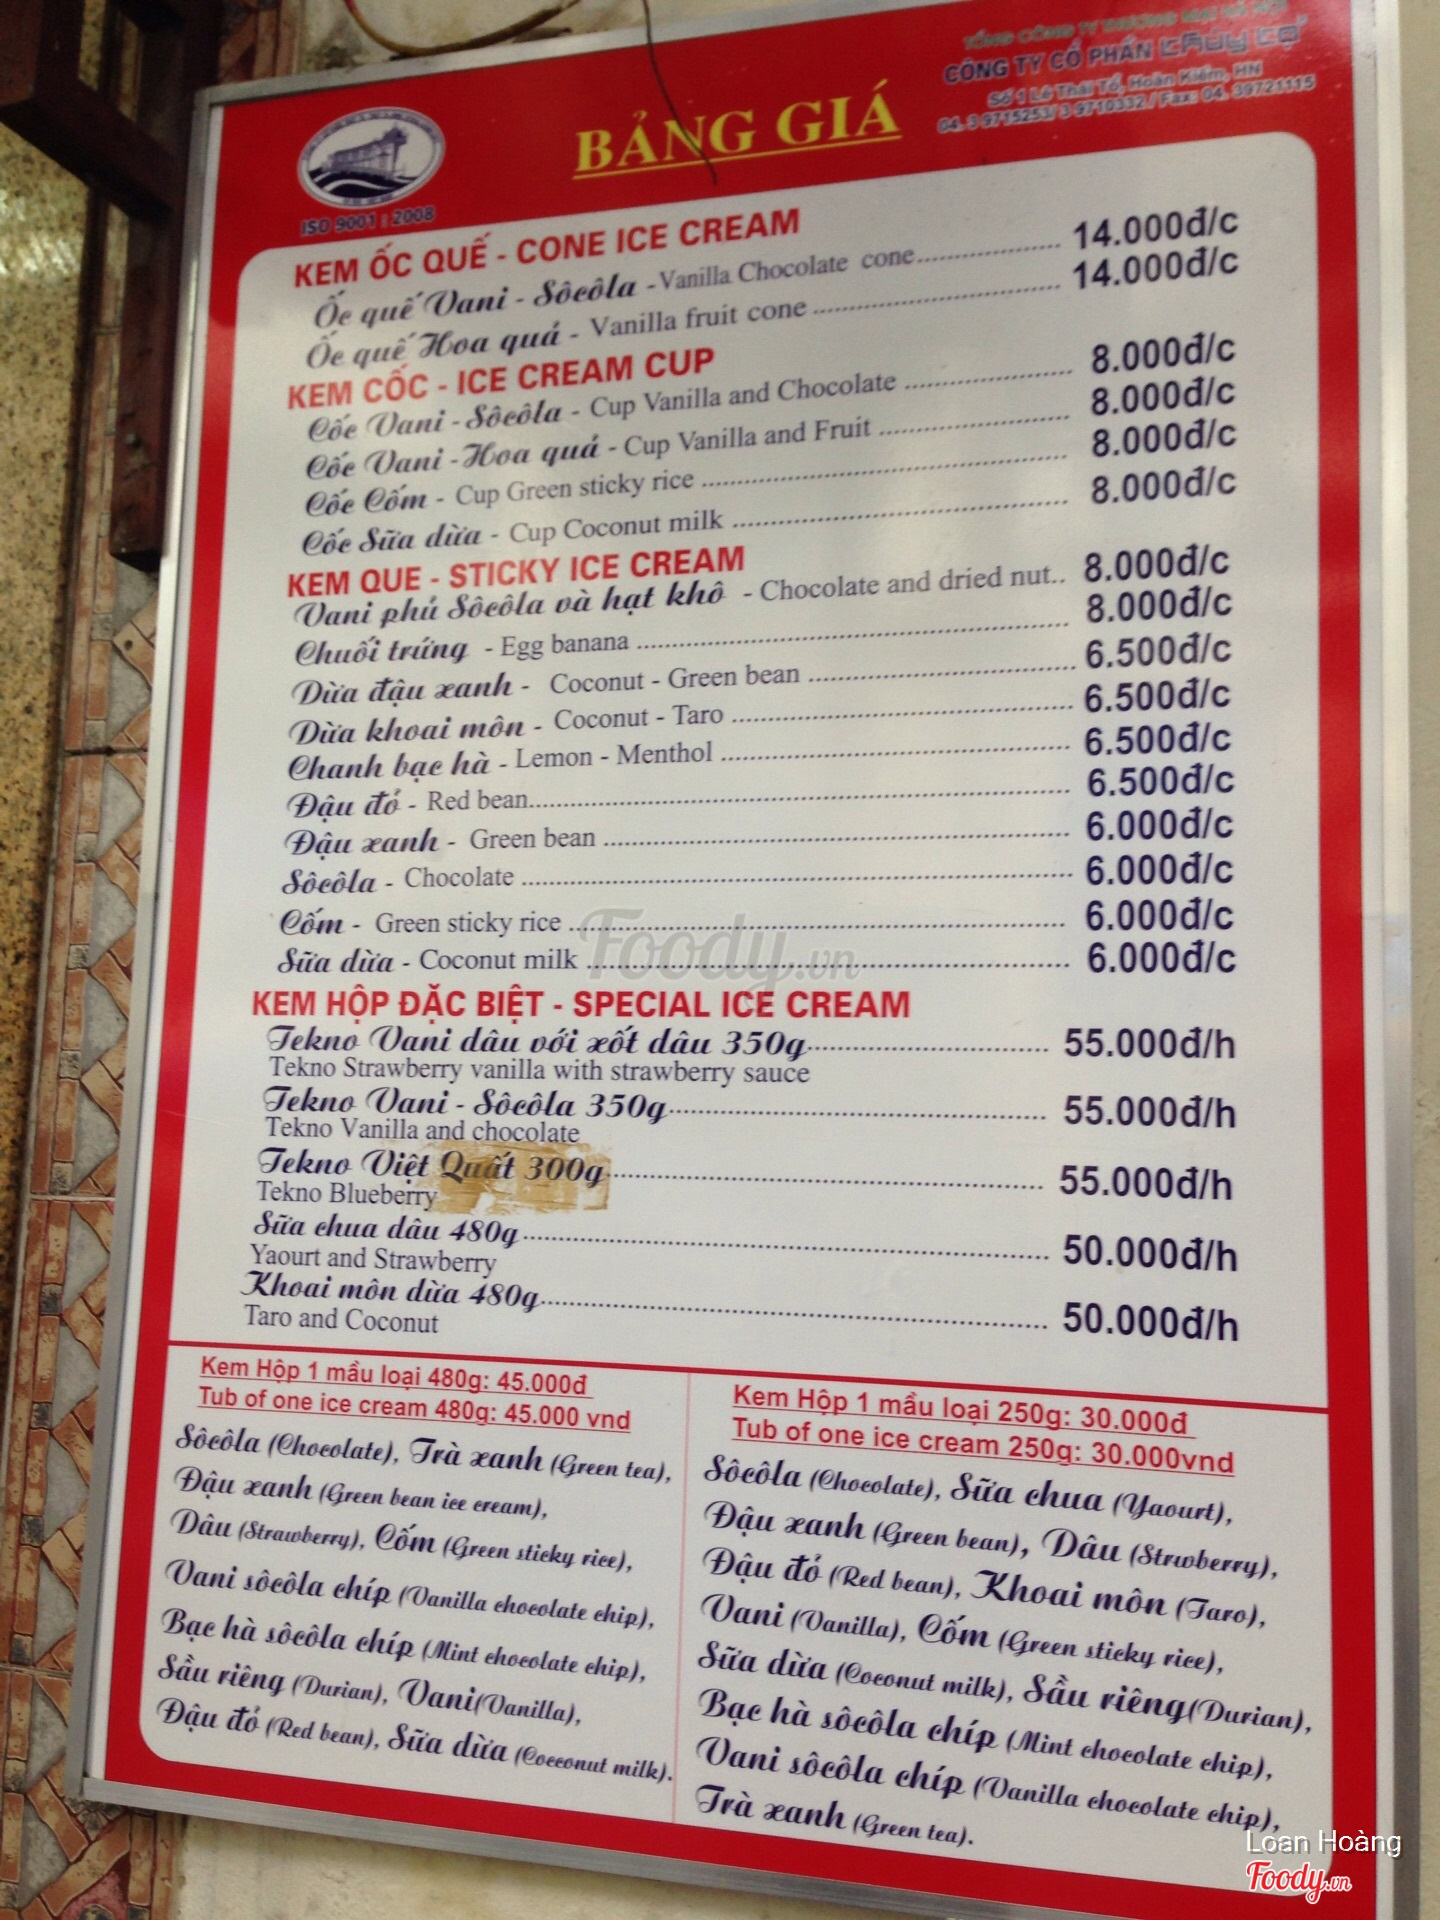 TỔNG CÔNG TY THƯƠNG MẠI HÀ NỘI
CÔNG TY CỔ PHẦN THỦY TẠ
Số 1 Lê Thái Tổ, Hoàn Kiếm, HN
04. 3 9715253/ 3 9710332 / Fax: 04. 39721115
BẢNG GIÁ
ISO 9001 : 2008
KEM ỐC QUẾ - CONE ICE CREAM
Ốc quế Vani - Sôcôla - Vanilla Chocolate cone 14.000đ/c
Ốc quế Hoa quả - Vanilla fruit cone 14.000đ/c
KEM CỐC - ICE CREAM CUP
Cốc Vani - Sôcôla - Cup Vanilla and Chocolate 8.000đ/c
Cốc Vani - Hoa quả - Cup Vanilla and Fruit 8.000đ/c
Cốc Cốm - Cup Green sticky rice 8.000đ/c
Cốc Sữa dừa - Cup Coconut milk 8.000đ/c
KEM QUE - STICKY ICE CREAM
Vani phủ Sôcôla và hạt khô - Chocolate and dried nut.. 8.000đ/c
Chuối trứng - Egg banana 8.000đ/c
Dừa đậu xanh - Coconut - Green bean 6.500đ/c
Dừa khoai môn - Coconut - Taro 6.500đ/c
Chanh bạc hà - Lemon - Menthol 6.500đ/c
Đậu đỏ - Red bean 6.500đ/c
Đậu xanh - Green bean 6.000đ/c
Sôcôla - Chocolate 6.000đ/c
Cốm - Green sticky rice 6.000đ/c
Sữa dừa - Coconut milk 6.000đ/c
Foody.vn
KEM HỘP ĐẶC BIỆT - SPECIAL ICE CREAM
Tekno Vani dâu với xốt dâu 350g 55.000đ/h
Tekno Strawberry vanilla with strawberry sauce
Tekno Vani - Sôcôla 350g 55.000đ/h
Tekno Vanilla and chocolate
Tekno Việt Quất 300g 55.000đ/h
Tekno Blueberry
Sữa chua dâu 480g 50.000đ/h
Yaourt and Strawberry
Khoai môn dừa 480g 50.000đ/h
Taro and Coconut
Kem Hộp 1 mầu loại 480g: 45.000đ
Tub of one ice cream 480g: 45.000 vnd
Sôcôla (Chocolate), Trà xanh (Green tea),
Đậu xanh (Green bean ice cream),
Dâu (Strawberry), Cốm (Green sticky rice),
Vani sôcôla chíp (Vanilla chocolate chip),
Bạc hà sôcôla chíp (Mint chocolate chip),
Sầu riêng (Durian), Vani(Vanilla),
Đậu đỏ (Red bean), Sữa dừa (Cocconut milk).
Kem Hộp 1 mầu loại 250g: 30.000đ
Tub of one ice cream 250g: 30.000vnd
Sôcôla (Chocolate), Sữa chua (Yaourt),
Đậu xanh (Green bean), Dâu (Strwberry),
Đậu đỏ (Red bean), Khoai môn (Taro),
Vani (Vanilla), Cốm (Green sticky rice),
Sữa dừa (Coconut milk), Sầu riêng(Durian),
Bạc hà sôcôla chíp (Mint chocolate chip),
Vani sôcôla chíp (Vanilla chocolate chip),
Trà xanh (Green tea).
Loan Hoàng
Foody.vn